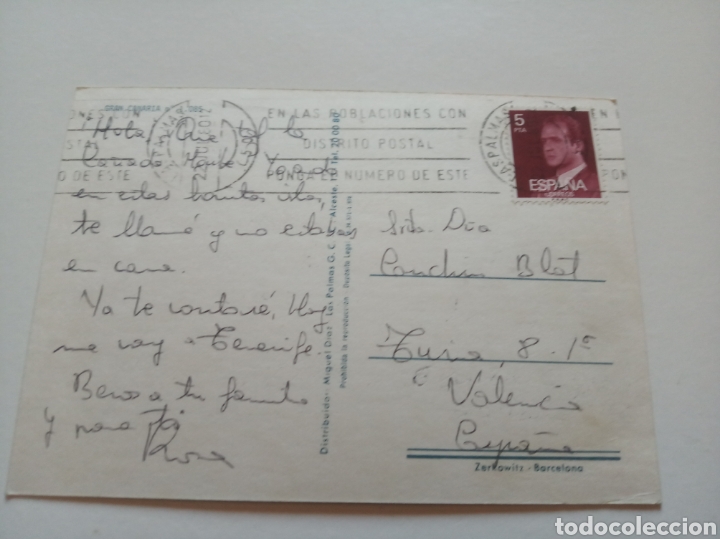 GRAN CANARIA
EN LAS POBLACIONES CON
DISTRITO POSTAL
PONGA EL NUMERO DE ESTE
LAS PALMAS
5
PTA
ESPAÑA
CORREOS
Hola Que tal lo
en estas bonitas islas,
te llamé y no estabas
en casa.
Ya te contaré, Hoy
me voy a Tenerife.
Besos a tu familia
y para ti
Rosa
Srta. Dña
Conchin Blat
Turia, 8-1º
Valencia
España
Distribuidor Miguel Diaz Las Palmas G. C.
Prohibida la reproducción
Zerkowitz - Barcelona
todocoleccion